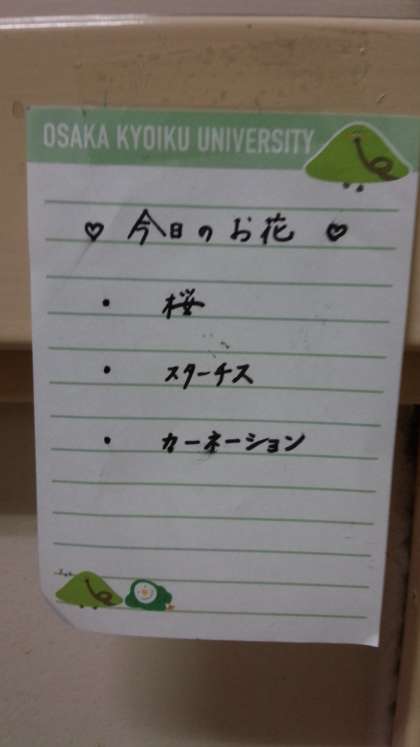 OSAKA KYOIKU UNIVERSITY
♡ 今日のお花 ♡
・ 桜
・ スターチス
・ カーネーション